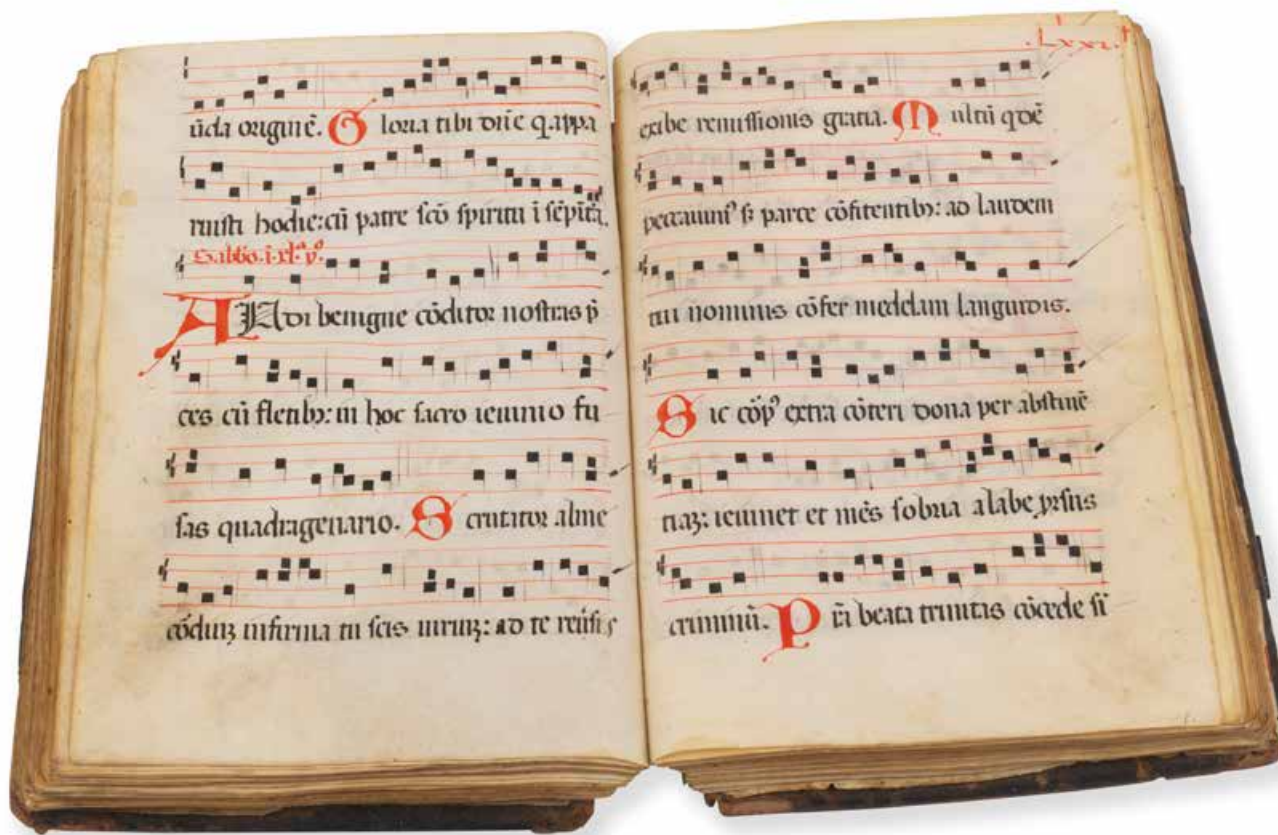 ūda origine. Gloria tibi dn̄e q appa
ruisti hodie: cū patre scō spiritu ī sēpit̄a.
Sabbō.i.xlᵃ.yᵒ.
AUdi benigne cōditor nostras p̄
ces cū fletibꝫ: in hoc sacro ieiunio fu
sas quadragenario. Scrutator alme
cōdiuꝫ infirma tu scis uiriuꝫ: ad te reūsis
.Lxxi.
exibe remissionis gratia. Multū qdē
peccauimꝰ sꝫ parce cōfitentibꝫ: ad laudem
tui nominis cōfer medelam languidis.
Sic cōpꝰ extra cōteri dona per abstinē
tiaꝫ: ieiunet et mēs sobria a labe prsus
criminū. Pr̄a beata trinitas cōcede si